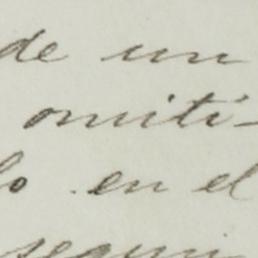 de un
omiti-
lo en el
segun